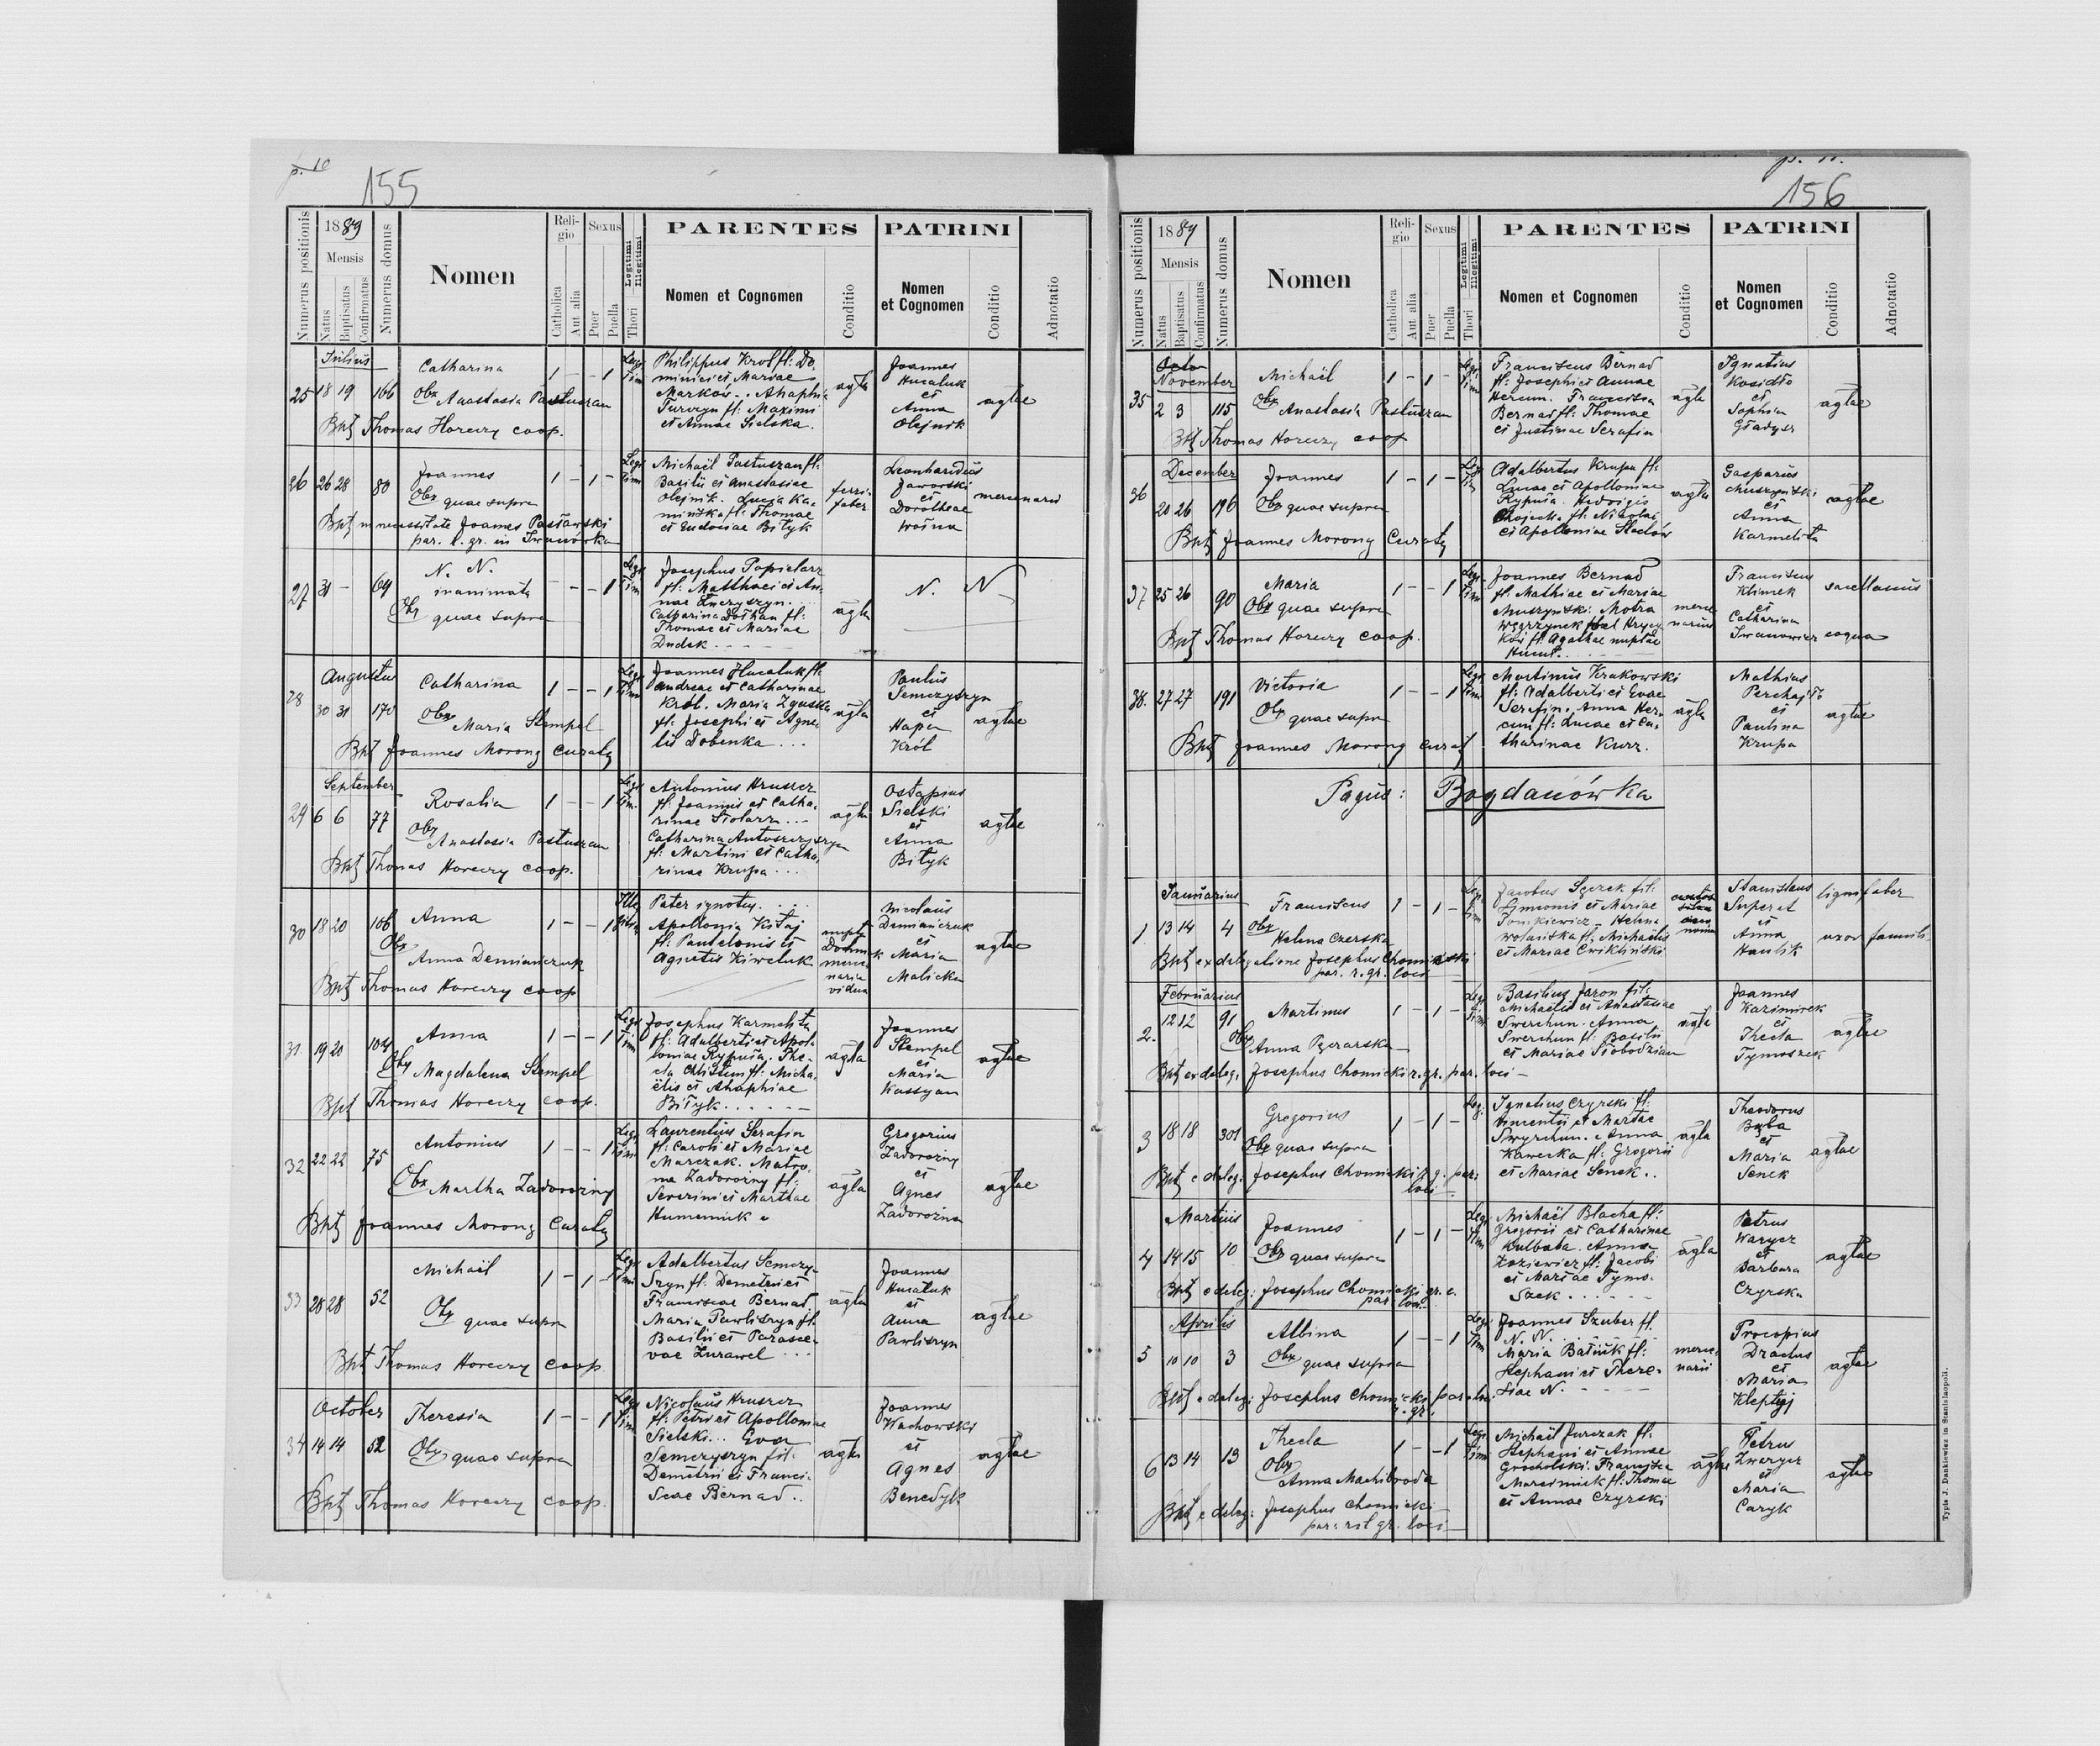 p. 10
155
Numerus positionis
1889
Mensis
Natus
Baptisatus
Confirmatus
Numerus domus
Nomen
Religio
Catholica
Aut alia
Sexus
Puer
Puella
Thori
Legitimi
Illegitimi
PARENTES
Nomen et Cognomen
Conditio
PATRINI
Nomen
et Cognomen
Conditio
Adnotatio
Julius
25 18 19 166 Catharina 1 - - 1 Legi
tim
Obx Anastasia Pastuszan
Bpt Thomas Horeczy coop.
Philippus Krol fl: Do
minici et Mariae
Marków.. Ahaphia
Turczyn fl: Maximi
et Annae Sielska.
agla
Joannes
Hucaluk
et
Anna
Olejnik
aglae
26 26 28 80 Joannes 1 - 1 - Legi
tim
Obx quae supra
Bpt in necessitate Joannes Pastawski
par. r. gr. in Iwanówka
Michaël Pastuszan fl:
Basilii et Anastasiae
Olejnik. Lucia Ka-
mińska fl: Thomae
et Eudosiae Bityk
ferri-
faber
Leonhardus
Jaworski
et
Dorotheae
27 31 - 69 N. N.
inanimata - - 1 Legi
tim
Obx quae supra
Josephus Papielarz
fl: Matthaei et An-
nae
Catharina fl:
Thomae et Mariae
Dudek
agla
N. N
Augustus
28 30 31 170 Catharina 1 - - 1 Legi
tim
Obx Maria Stempel
Bpt Joannes Morong Curatg
Joannes Hucaluk fl:
Andreae et Catharinae
Król. Maria
fl: Josephi et Agne-
tis Dobenka...
agla
Paulus
Semczyszyn
et
Hapa
Król
aglae
September
29 6 6 77 Rosalia 1 - - 1 Legi
tim.
Obx Anastasia Pastuszan
Bpt Thomas Horeczy coop.
Antonius Hruszcz
fl. Joannis et Catha-
rinae Stolarz...
Catharina Antoszczyszyn
fl: Martini et Catha-
rinae Krupa...
agla
Ostapius
Sielski
et
Anna
Bityk
aglae
30 18 20 106 Anna 1 - - 1 Ille
gitim
Obx
Anna Demiańczuk
Bpt Thomas Horeczy coop
Pater ignotus....
Apollonia Kitaj
fl: Pantelonis et
Agnetis Kiweluk
merce
naria
vidua
Nicolaus
Demiańczuk
et
Maria
Malicka
aglae
31 19 20 104 Anna 1 - - 1 Legi
tim
Obx Magdalena Stempel
Bpt Thomas Horeczy coop.
Josephus Karmelita
fl: Adalberti et Apol-
loniae Rypuia. The-
cla fl: Micha-
ëlis et Ahaphiae
Bityk
agla
Joannes
Stempel
et
Maria
Kassyan
aglae
32 22 22 75 Antonius 1 - - 1 Legi
tim
Obx Martha Zadorożny
Bpt Joannes Morong Curatg
Laurentius Serafin
fl: Caroli et Mariae
Marczak. Matro-
na Zadorożny fl:
Severini et Marthae
Humeniuk
agla
Gregorius
Zadorożny
et
Agnes
Zadorożna
aglae
33 28 28 52 Michaël 1 - 1 - Legi
tim
Obx
quae supra
Bpt Thomas Horeczy coop
Adalbertus Semczy-
szyn fl: Demetrii et
Franciscae Bernad
Maria Pawliszyn fl.
Basilii et Parasce-
vae Żurawel...
agla
Joannes
Hucaluk
et
Anna
Pawliszyn
aglae
October
34 14 14 52 Theresia 1 - - 1 Legi
tim
Obx quae supra
Bpt Thomas Horeczy coop.
Nicolaus Hruszcz
fl: Petri et Apolloniae
Sielski... Eva
Semczyszyn fil:
Demetrii et Franci-
scae Bernad..
agla
Joannes
Wachowski
et
Agnes
Benedyk
aglae
p. 11.
156
Numerus positionis
1889
Mensis
Natus
Baptisatus
Confirmatus
Numerus domus
Nomen
Religio
Catholica
Aut alia
Sexus
Puer
Puella
Thori
Legitimi
Illegitimi
PARENTES
Nomen et Cognomen
Conditio
PATRINI
Nomen
et Cognomen
Conditio
Adnotatio
Octo
November
35 2 3 115 Michaël 1 - 1 - Legi
tim
Obx
Anastasia Pastuszan
Bpt Thomas Horeczy coop
Franciscus Bernad
fl: Josephi et Annae
Hercun. Francisca
Bernad fl: Thomae
et Justinae Serafin
agla
Ignatius
Kosidło
et
Sophia
Gładysz
aglae
December
36 20 26 196 Joannes 1 - 1 - Legi
tim
Obx quae supra
Bpt Joannes Morong Curatg
Adalbertus Krupa fl:
Lucae et Apolloniae
Rypuia. Hedvigis
Chojecka fl: Nicolai
et Apolloniae Stachów
agla
Gasparus
Muszyński
et
Anna
Karmelita
aglae
37 25 26 90 Maria 1 - - 1 Legi
tim
Obx quae supra
Bpt Thomas Horeczy coop.
Joannes Bernad
fl. Mathiae et Mariae
Muszyński. Motra
Węgrzynek
fl: Agathae nuptae
merce
narius
Franciscus
Klimek
et
Catharina
Iwanowicz
sacellanus
coqua
38. 27 27 191 Victoria 1 - - 1 Legi
tim
Obx quae supra
Bpt Joannes Morong curat
Martinus Krakowski
fl: Adalberti et Evae
Serafin. Anna Her-
cun fl: Lucae et Ca-
tharinae Kurz.
agla
Mathias
Perchajło
et
Paulina
Krupa
aglae
Pagus: Bogdanówka
Januarius
1 13 14 4 Franciscus 1 - 1 - Legi
tim
Obx
Helena Czerska
Bpt ex delegatione Josephus Chomicki
par. r. gr. loci
Jacobus Szczek fil:
Symeonis et Mariae
Jonkiewicz. Helena
Wolańska fl: Michaëlis
et Mariae Cwikliński
Stanislaus
Superat
et
Anna
Hawlik
lignifaber
uxor famuli
Februarius
2. 12 12 91 Martinus 1 - 1 - Legi
tim
Obx Anna Pęzarska
Bpt ex deleg: Josephus Chomicki r. gr. par. loci
Basilius Jaron fil:
Michaëlis et Anastasiae
Swerchun. Anna
Swerchun fl: Basilii
et Mariae Słobodzian
agla
Joannes
Kazimirek
et
Thecla
Tymoszek
aglae
3 18 18 301 Gregorius 1 - 1 - Legi.
Obx quae supra
Bpt e deleg: Josephus Chomicki r. g. par:
loci
Ignatius Czyrski fl:
Vincentii et Martae
Swyrchun. Anna
Kawecka fl: Gregorii
et Mariae Senek..
agla
Theodorus
Buba
et
Maria
Senek
aglae
Martius
4 14 15 10 Joannes 1 - 1 - Legi
tim
Obx quae supra
Bpt e deleg: Josephus Chomicki gr. c.
par loci
Michaël Blacha fl:
Gregorii et Catharinae
Kulbaba. Anna
Koziewicz fl: Jacobi
et Mariae Tymo-
szek......
agla
Petrus
Warycz
et
Barbara
Czyrska
aglae
Aprilis
5 10 10 3 Albina 1 - - 1 Legi
tim
Obx quae supra
Bpt e deleg: Josephus Chomicki par. loci
r. gr.
Joannes Szuber fl.
N. N.
Maria Batiuk fl:
Stephani et There-
siae N.
merce
narii
Procopius
Dractus
et
Maria
Kleptyj
aglae
6 13 14 13 Thecla 1 - - 1 Legi
tim
Obx
Anna Machibroda
Bpt e deleg: Josephus Chomicki
par: rit gr. loci
Michaël Jurczak fl:
Stephani et Annae
Grocholski. Francisca
Marciniuk fl: Thomae
et Annae Czyrski
aglae
Petrus
Zwarycz
et
Maria
Caryk
aglae
Typis J. Dankiewicz in Stanislaopoli.